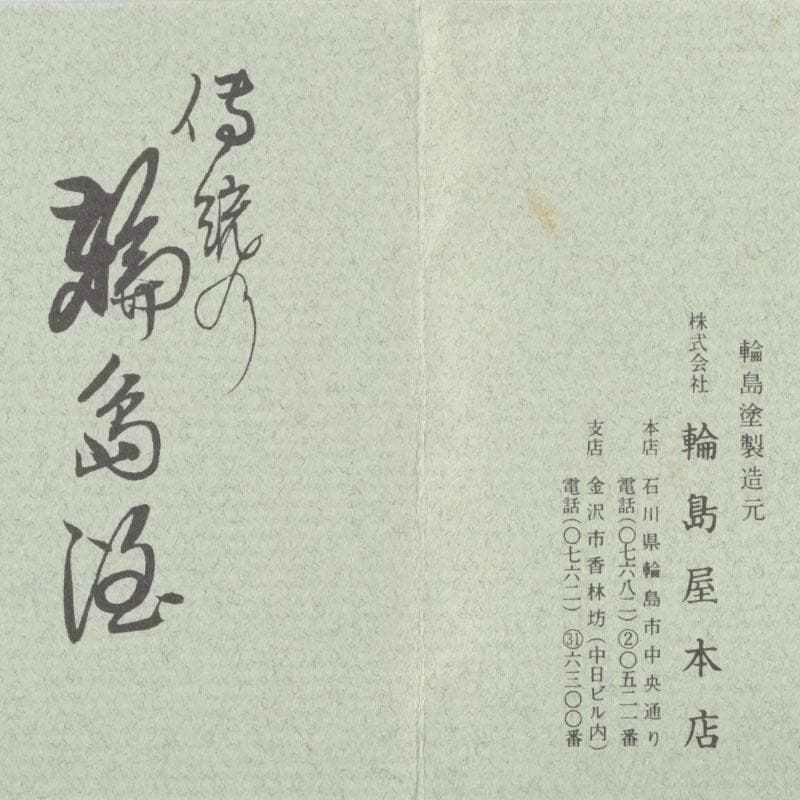 輪島塗製造元
株式会社 輪島屋本店
本店 石川県輪島市中央通り
電話(〇七六八二)②〇五二一番
支店 金沢市香林坊(中日ビル内)
電話(〇七六二)㉛六三〇〇番
傳統の
輪島塗